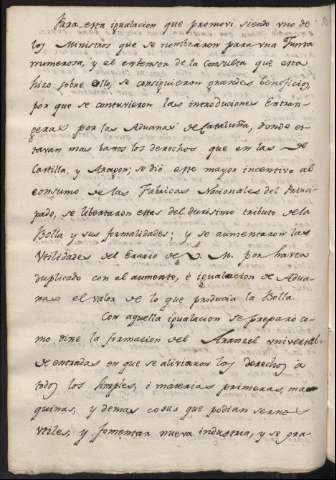 Para esta igualacion que promoví siendo uno de
los Ministros que se nombraron para una Junta
numerosa, y el extenso de la Consulta que esta
hizo sobre ello, se consiguieron grandes beneficios,
por que se contuvieron las introduciones Extran
geras por las Aduanas de Cataluña, donde es
taban mas bajos los derechos que en las de
Castilla, y Aragon; se dió este mayor incentivo al
consumo de las Fabricas Nacionales del Princi
pado, se libertaron estas del durisimo tributo de la
Bolla y sus formalidades; y se aumentaron las
Utilidades del Erario de V. M. por haver
duplicado con el aumento, é igualacion de Adua
nas el valor de lo que producia la Bolla.
Con aquella igualacion se preparó co
mo dixe la formacion del Arancel universal
de entradas en que se aliviaron los derechos á
todos los simples, ó materias primeras, ma
quinas, y demas cosas que podian sernos
utiles, y fomentar nueva industria; y se gra